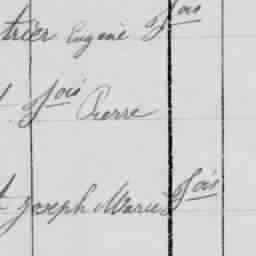 trier Eugène fois
fois Pierre
Joseph Marie fois